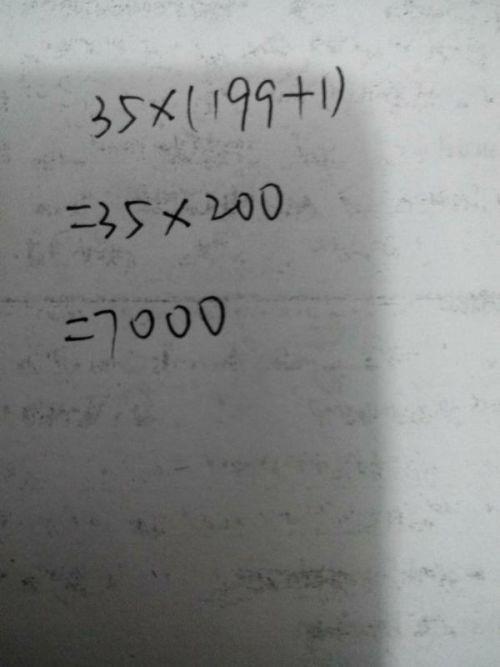 35×(199+1)
=35×200
=7000